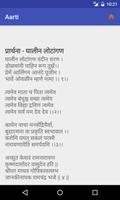 10:21
Aarti
प्रार्थना - घालीन लोटांगण
घालीन लोटांगण वंदीन चरण ।
डोळ्यांनी पाहिन रूप तुझें ।
प्रेमें आलिंगन आनंदें पूजीन ।
भावें ओवळीन म्हणे नामा ।।१।।
त्वमेव माता पिता त्वमेव ।
त्वमेव बंधुश्च सखा त्वमेव ।
त्वमेव विद्या द्रविणं त्वमेव ।
त्वमेव सर्वं मम देव देव ।।२।।
कायेन वाचा मनसेंद्रियैर्वा,
बुद्धयात्मना वा प्रकृति स्वभावात ।
करोमि यद्यत सकलं परस्मै,
नारायणायेति समर्पयामि ।।३।।
अच्युतं केशवं रामनारायणं
कृष्णदामोदरं वासुदेवं हरि ।
श्रीधरं माधवं गोपिकावल्लभं
जानकीनायकं रामचंद्रं भजे ।।४।।